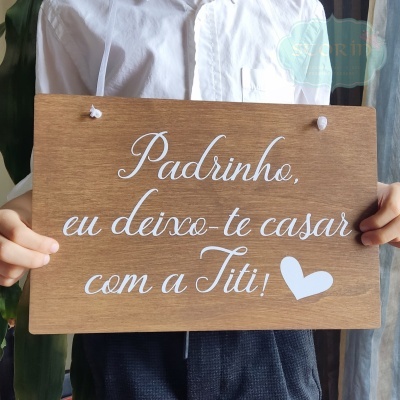 Padrinho,
eu deixo-te casar
com a Titi!